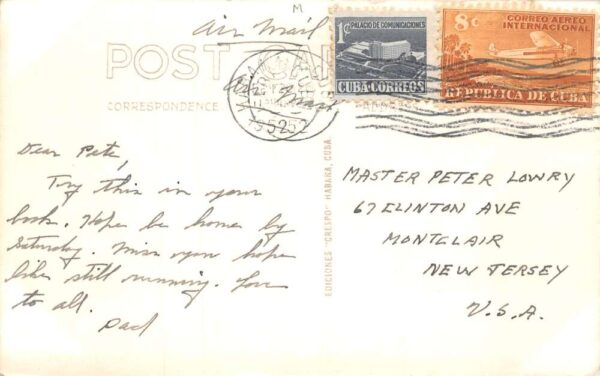 M
Air Mail
POST
CORRESPONDENCE
1¢ PALACIO DE COMUNICACIONES
CUBA·CORREOS
8¢ CORREO AEREO
INTERNACIONAL
REPUBLICA DE CUBA
Air Mail
1952
Dear Pete,
Try this in your
book. Hope be home by
Saturday. Miss you hope
bike still running. Love
to all.
Dad
EDICIONES "CRESPO" HABANA, CUBA
MASTER PETER LOWRY
67 CLINTON AVE
MONTCLAIR
NEW JERSEY
U.S.A.